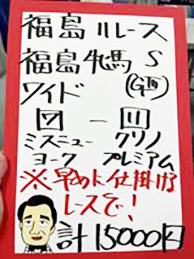 福島11レース
福島牝馬S
(GⅢ)
ワイド
④ー⑪
ミスニューヨーク クリノプレミアム
※早めに仕掛けるレースで!
計15000円